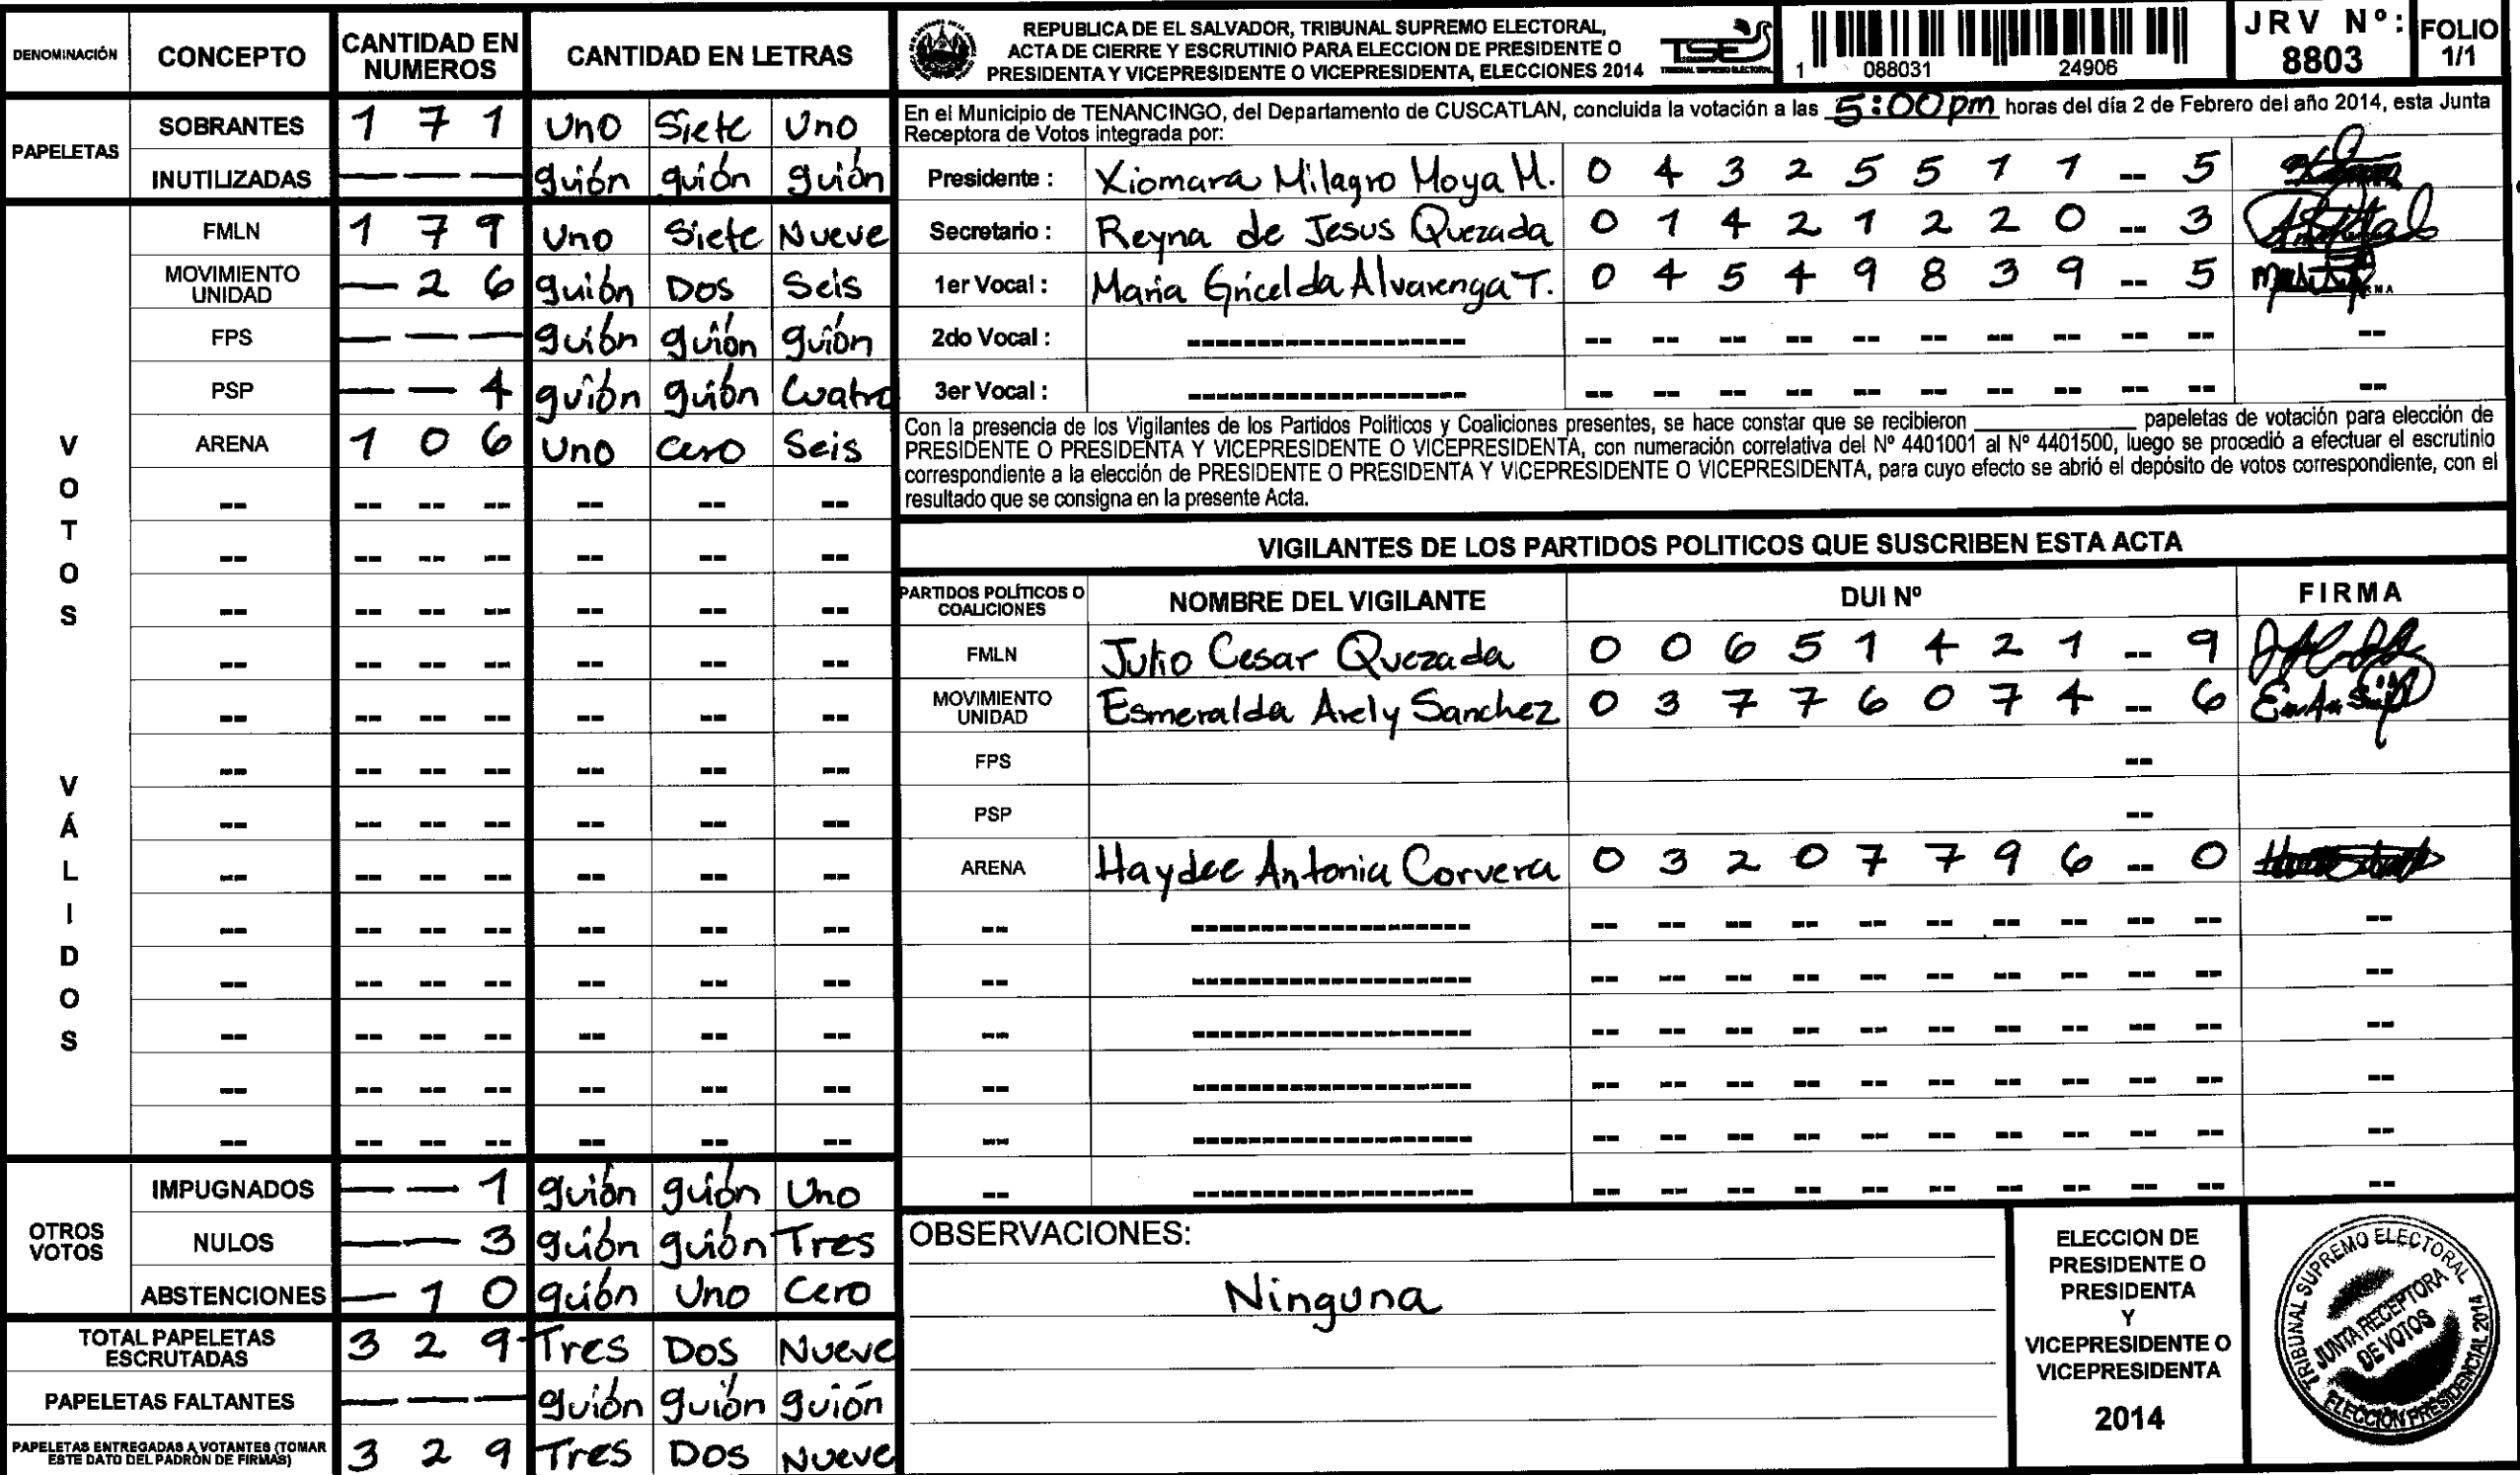 DENOMINACIÓN CONCEPTO CANTIDAD EN NUMEROS CANTIDAD EN LETRAS
PAPELETAS
SOBRANTES 1 7 1 Uno Siete Uno
INUTILIZADAS — — — guión guión guión
VOTOS VÁLIDOS
FMLN 1 7 9 Uno Siete Nueve
MOVIMIENTO UNIDAD — 2 6 guión Dos Seis
FPS — — — guión guión guión
PSP — — 4 guión guión Cuatro
ARENA 1 0 6 Uno Cero Seis
-- -- -- -- -- -- --
-- -- -- -- -- -- --
-- -- -- -- -- -- --
-- -- -- -- -- -- --
-- -- -- -- -- -- --
-- -- -- -- -- -- --
-- -- -- -- -- -- --
-- -- -- -- -- -- --
-- -- -- -- -- -- --
-- -- -- -- -- -- --
-- -- -- -- -- -- --
-- -- -- -- -- -- --
-- -- -- -- -- -- --
OTROS VOTOS
IMPUGNADOS — — 1 guión guión Uno
NULOS — — 3 guión guión Tres
ABSTENCIONES — 1 0 guión Uno Cero
TOTAL PAPELETAS ESCRUTADAS 3 2 9 Tres Dos Nueve
PAPELETAS FALTANTES — — — guión guión guión
PAPELETAS ENTREGADAS A VOTANTES (TOMAR ESTE DATO DEL PADRÓN DE FIRMAS) 3 2 9 Tres Dos Nueve
REPUBLICA DE EL SALVADOR, TRIBUNAL SUPREMO ELECTORAL,
ACTA DE CIERRE Y ESCRUTINIO PARA ELECCION DE PRESIDENTE O
PRESIDENTA Y VICEPRESIDENTE O VICEPRESIDENTA, ELECCIONES 2014
TSE
TRIBUNAL SUPREMO ELECTORAL
1 088031 24906
JRV Nº: 8803
FOLIO 1/1
En el Municipio de TENANCINGO, del Departamento de CUSCATLAN, concluida la votación a las 5:00 pm horas del día 2 de Febrero del año 2014, esta Junta
Receptora de Votos integrada por:
Presidente : Xiomara Milagro Moya M. 0 4 3 2 5 5 1 1 -- 5
Secretario : Reyna de Jesus Quezada 0 1 4 2 1 2 2 0 -- 3
1er Vocal : Maria Gricelda Alvarenga T. 0 4 5 4 9 8 3 9 -- 5
2do Vocal : ------------------- -- -- -- -- -- -- -- -- -- -- --
3er Vocal : ------------------- -- -- -- -- -- -- -- -- -- -- --
Con la presencia de los Vigilantes de los Partidos Políticos y Coaliciones presentes, se hace constar que se recibieron ________ papeletas de votación para elección de
PRESIDENTE O PRESIDENTA Y VICEPRESIDENTE O VICEPRESIDENTA, con numeración correlativa del Nº 4401001 al Nº 4401500, luego se procedió a efectuar el escrutinio
correspondiente a la elección de PRESIDENTE O PRESIDENTA Y VICEPRESIDENTE O VICEPRESIDENTA, para cuyo efecto se abrió el depósito de votos correspondiente, con el
resultado que se consigna en la presente Acta.
VIGILANTES DE LOS PARTIDOS POLITICOS QUE SUSCRIBEN ESTA ACTA
PARTIDOS POLÍTICOS O COALICIONES NOMBRE DEL VIGILANTE DUI Nº FIRMA
FMLN Julio Cesar Quezada 0 0 6 5 1 4 2 1 -- 9
MOVIMIENTO UNIDAD Esmeralda Arely Sanchez 0 3 7 7 6 0 7 4 -- 6
FPS --
PSP --
ARENA Haydee Antonia Corvera 0 3 2 0 7 7 9 6 -- 0
-- ------------------- -- -- -- -- -- -- -- -- -- -- --
-- ------------------- -- -- -- -- -- -- -- -- -- -- --
-- ------------------- -- -- -- -- -- -- -- -- -- -- --
-- ------------------- -- -- -- -- -- -- -- -- -- -- --
-- ------------------- -- -- -- -- -- -- -- -- -- -- --
-- ------------------- -- -- -- -- -- -- -- -- -- -- --
OBSERVACIONES:
Ninguna
ELECCION DE
PRESIDENTE O
PRESIDENTA
Y
VICEPRESIDENTE O
VICEPRESIDENTA
2014
TRIBUNAL SUPREMO ELECTORAL
JUNTA RECEPTORA
DE VOTOS
ELECCIÓN PRESIDENCIAL 2014